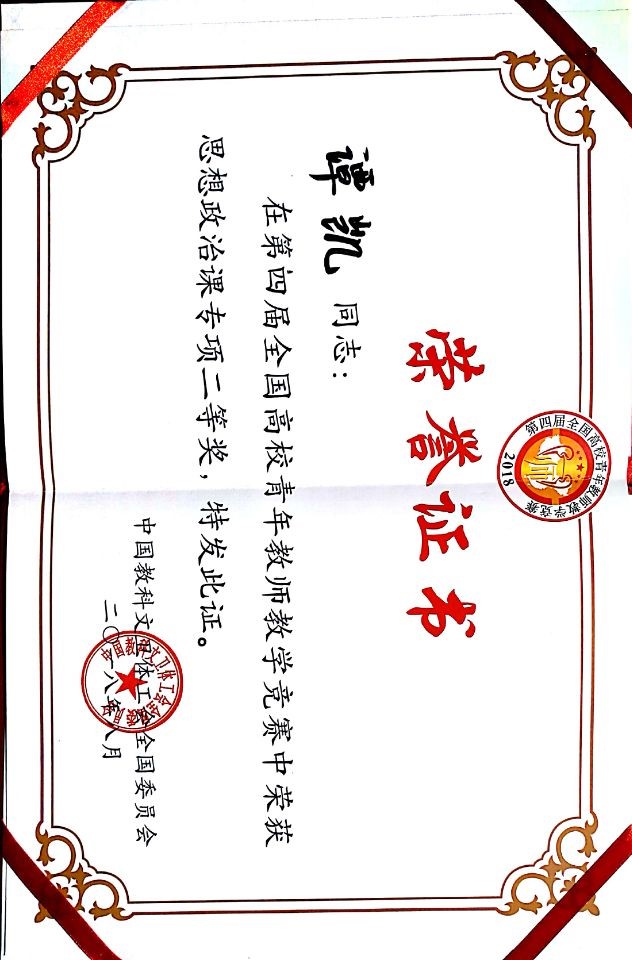 第四届全国高校青年教师教学竞赛
2018
荣誉证书
谭凯 同志：
在第四届全国高校青年教师教学竞赛中荣获
思想政治课专项二等奖，特发此证。
中国教科文卫体工会全国委员会
二〇一八年八月